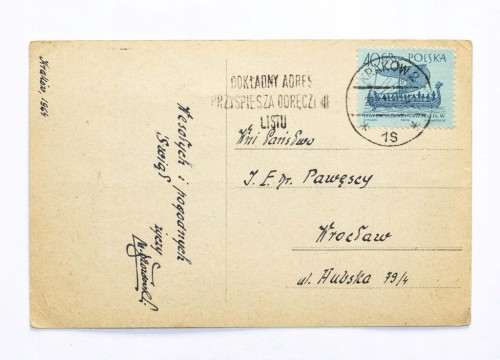 Kraków, 1964
Wesołych i pogodnych
Świąt
życzy
DOKŁADNY ADRES
PRZYSPIESZA DORĘCZENIE
LISTU
40 GR POLSKA
KRAKÓW 2
1S
Wni Państwo
J. E. Dr. Pawęscy
Wrocław
ul. Hubska 79/4